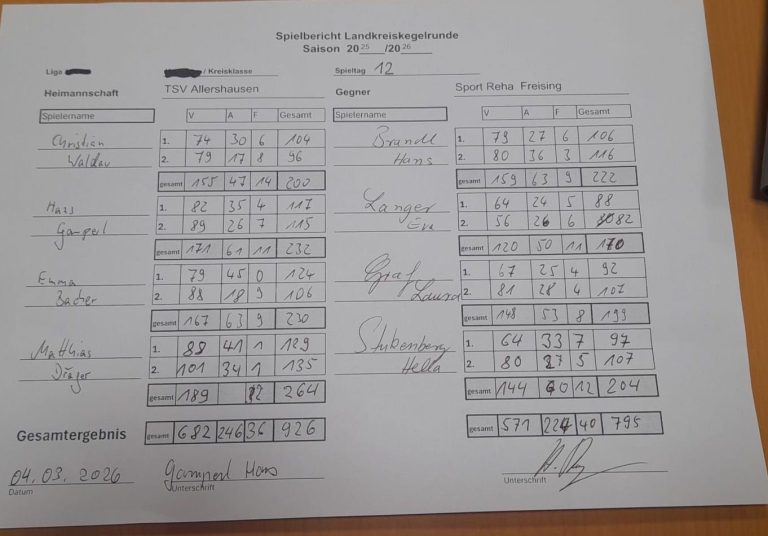 Spielbericht Landkreiskegelrunde
Saison 2025 /2026
Liga / Kreisklasse Spieltag 12
Heimannschaft TSV Allershausen Gegner Sport Reha Freising
Spielername V A F Gesamt Spielername V A F Gesamt
Christian 1. 74 30 6 104 Brandl 1. 79 27 6 106
Waldau 2. 79 17 8 96 Hans 2. 80 36 3 116
gesamt 155 47 14 200 gesamt 159 63 9 222
Hans 1. 82 35 4 117 Langer 1. 64 24 5 88
Gamperl 2. 89 26 7 115 Eva 2. 56 26 6 82
gesamt 171 61 11 232 gesamt 120 50 11 170
Emma 1. 79 45 0 124 Graf 1. 67 25 4 92
Bacher 2. 88 18 9 106 Laura 2. 81 28 4 107
gesamt 167 63 9 230 gesamt 148 53 8 199
Matthias 1. 88 41 1 129 Stukenberg 1. 64 33 7 97
Dräger 2. 101 34 1 135 Hella 2. 80 27 5 107
gesamt 189 2 264 gesamt 144 60 12 204
Gesamtergebnis gesamt 682 246 36 926 gesamt 571 224 40 795
04.03.2026 Gamperl Hans
Datum Unterschrift Unterschrift